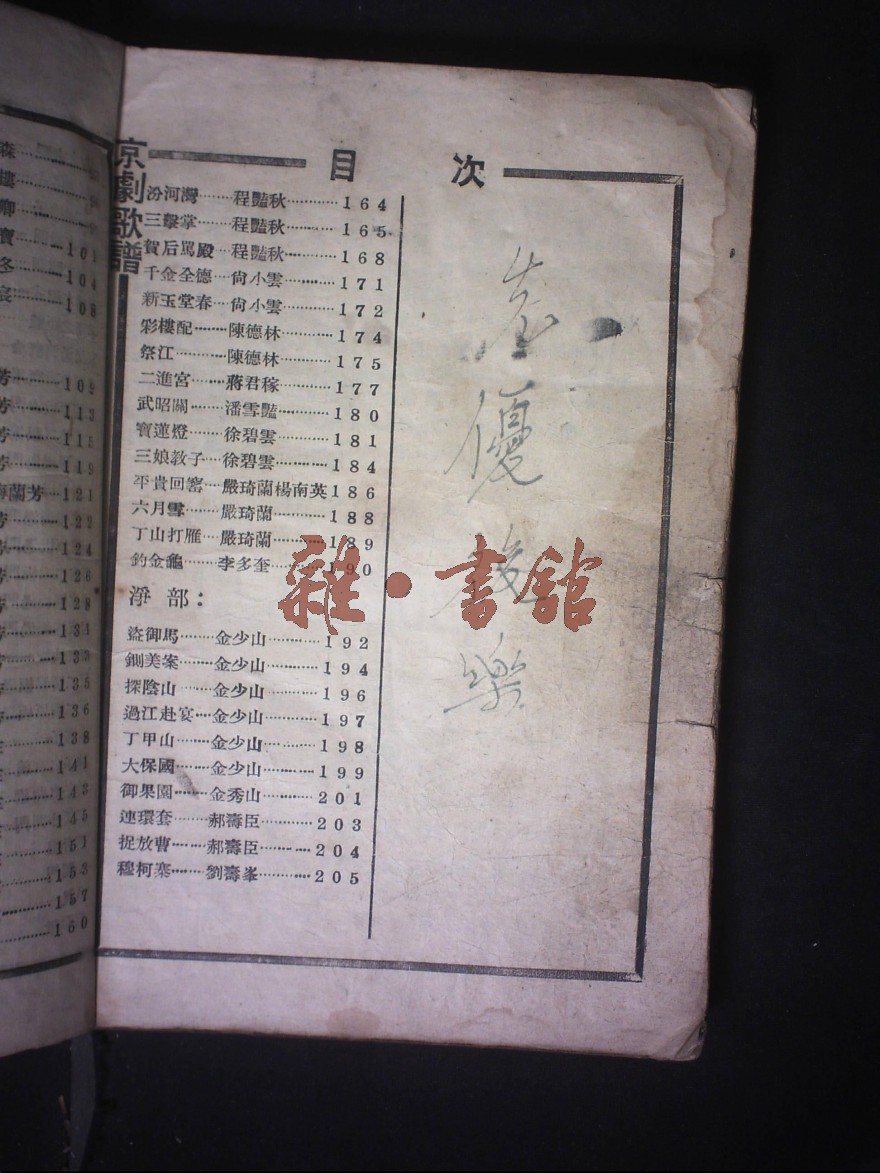 京劇歌譜
目 次
汾河灣……程豔秋………164
三擊掌……程豔秋………165
賀后罵殿…程豔秋………168
千金全德…尙小雲………171
新玉堂春…尙小雲………172
彩樓配……陳德林………174
祭江………陳德林………175
二進宮……蔣君稼………177
武昭關……潘雪豔………180
寶蓮燈……徐碧雲………181
三娘敎子…徐碧雲………184
平貴回窰…嚴琦蘭楊南英186
六月雪……嚴琦蘭………188
丁山打雁…嚴琦蘭………189
釣金龜……李多奎………190
淨 部：
盜御馬……金少山………192
鍘美案……金少山………194
探陰山……金少山………196
過江赴宴…金少山………197
丁甲山……金少山………198
大保國……金少山………199
御果園……金秀山………201
連環套……郝壽臣………203
捉放曹……郝壽臣………204
穆柯寨……劉壽峯………205
優
樂
雜·書館
104
108
109
113
115
119
蘭芳…121
122
124
126
128
131
133
135
136
138
141
143
145
151
153
157
160